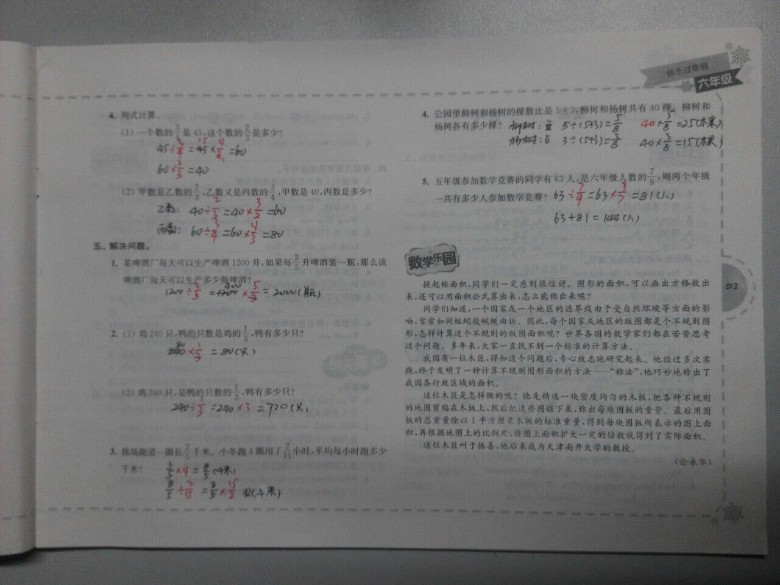 快乐过寒假
六年级
4. 列式计算。
(1) 一个数的3/4是45,这个数的2/3是多少?
45÷3/4=45×4/3=60
60×2/3=40
(2) 甲数是乙数的2/3,乙数又是丙数的3/4,甲数是40,丙数是多少?
乙数: 40÷2/3=40×3/2=60
丙数: 60÷3/4=60×4/3=80
五、解决问题。
1. 某啤酒厂每天可以生产啤酒1200升,如果每3/5升啤酒装一瓶,那么该
啤酒厂每天可以生产多少瓶啤酒?
1200÷3/5=1200×5/3=2000(瓶)
2. (1) 鸡240只,鸭的只数是鸡的1/3,鸭有多少只?
240×1/3=80(只)
(2) 鸡240只,是鸭的只数的1/3,鸭有多少只?
240÷1/3=240×3=720(只)
3. 操场跑道一圈长2/5千米。小冬跑4圈用了2/15小时,平均每小时跑多少
千米?
2/5×4=8/5(千米)
8/5÷2/15=8/5×15/2
4. 公园里柳树和杨树的棵数比是5:3,柳树和杨树共有40棵。柳树和
杨树各有多少棵?
柳树:占 5÷(5+3)=5/8 40×5/8=25(棵)
杨树:占 3÷(5+3)=3/8 40×3/8=15(棵)
5. 五年级参加数学竞赛的同学有63人,是六年级人数的7/9,则两个年级
一共有多少人参加数学竞赛? 63÷7/9=63×9/7=81(人)
63+81=144(人)
数学乐园
提起称面积,同学们一定感到很惊讶。图形的面积,可以画出方格数出
来,还可以用面积公式算出来,怎么能称出来呢?
同学们知道,一个国家或一个地区的边界线由于受自然环境等方面的影
响,常常如同蚯蚓般蜿蜒曲折。因此,每个国家或地区的版图都是个不规则图
形,怎样计算这个不规则的版图面积呢?世界各国的数学家们都在苦苦思考
这个问题。多年来,大家一直找不到一个标准的计算方法。
我国有一位木匠,得知这个问题后,专心致志地研究起来。他经过多次实
践,终于发明了一种计算不规则图形面积的方法——“称法”,他巧妙地称出了
我国各行政区域的面积。
这位木匠是怎样做的呢?他先精选一块密度均匀的木板,把各种不规则
的地图剪贴在木板上,然后把这些图锯下来,称出每块图板的重量。最后用图
板的总重量除以1平方厘米木板的标准重量,得到每块图板所表示的图上面
积,再根据地图上的比例尺,将图上面积扩大一定的倍数就得到了实际面积。
这位木匠叫于振善,他后来成为天津南开大学的教授。
(徐永华)
013